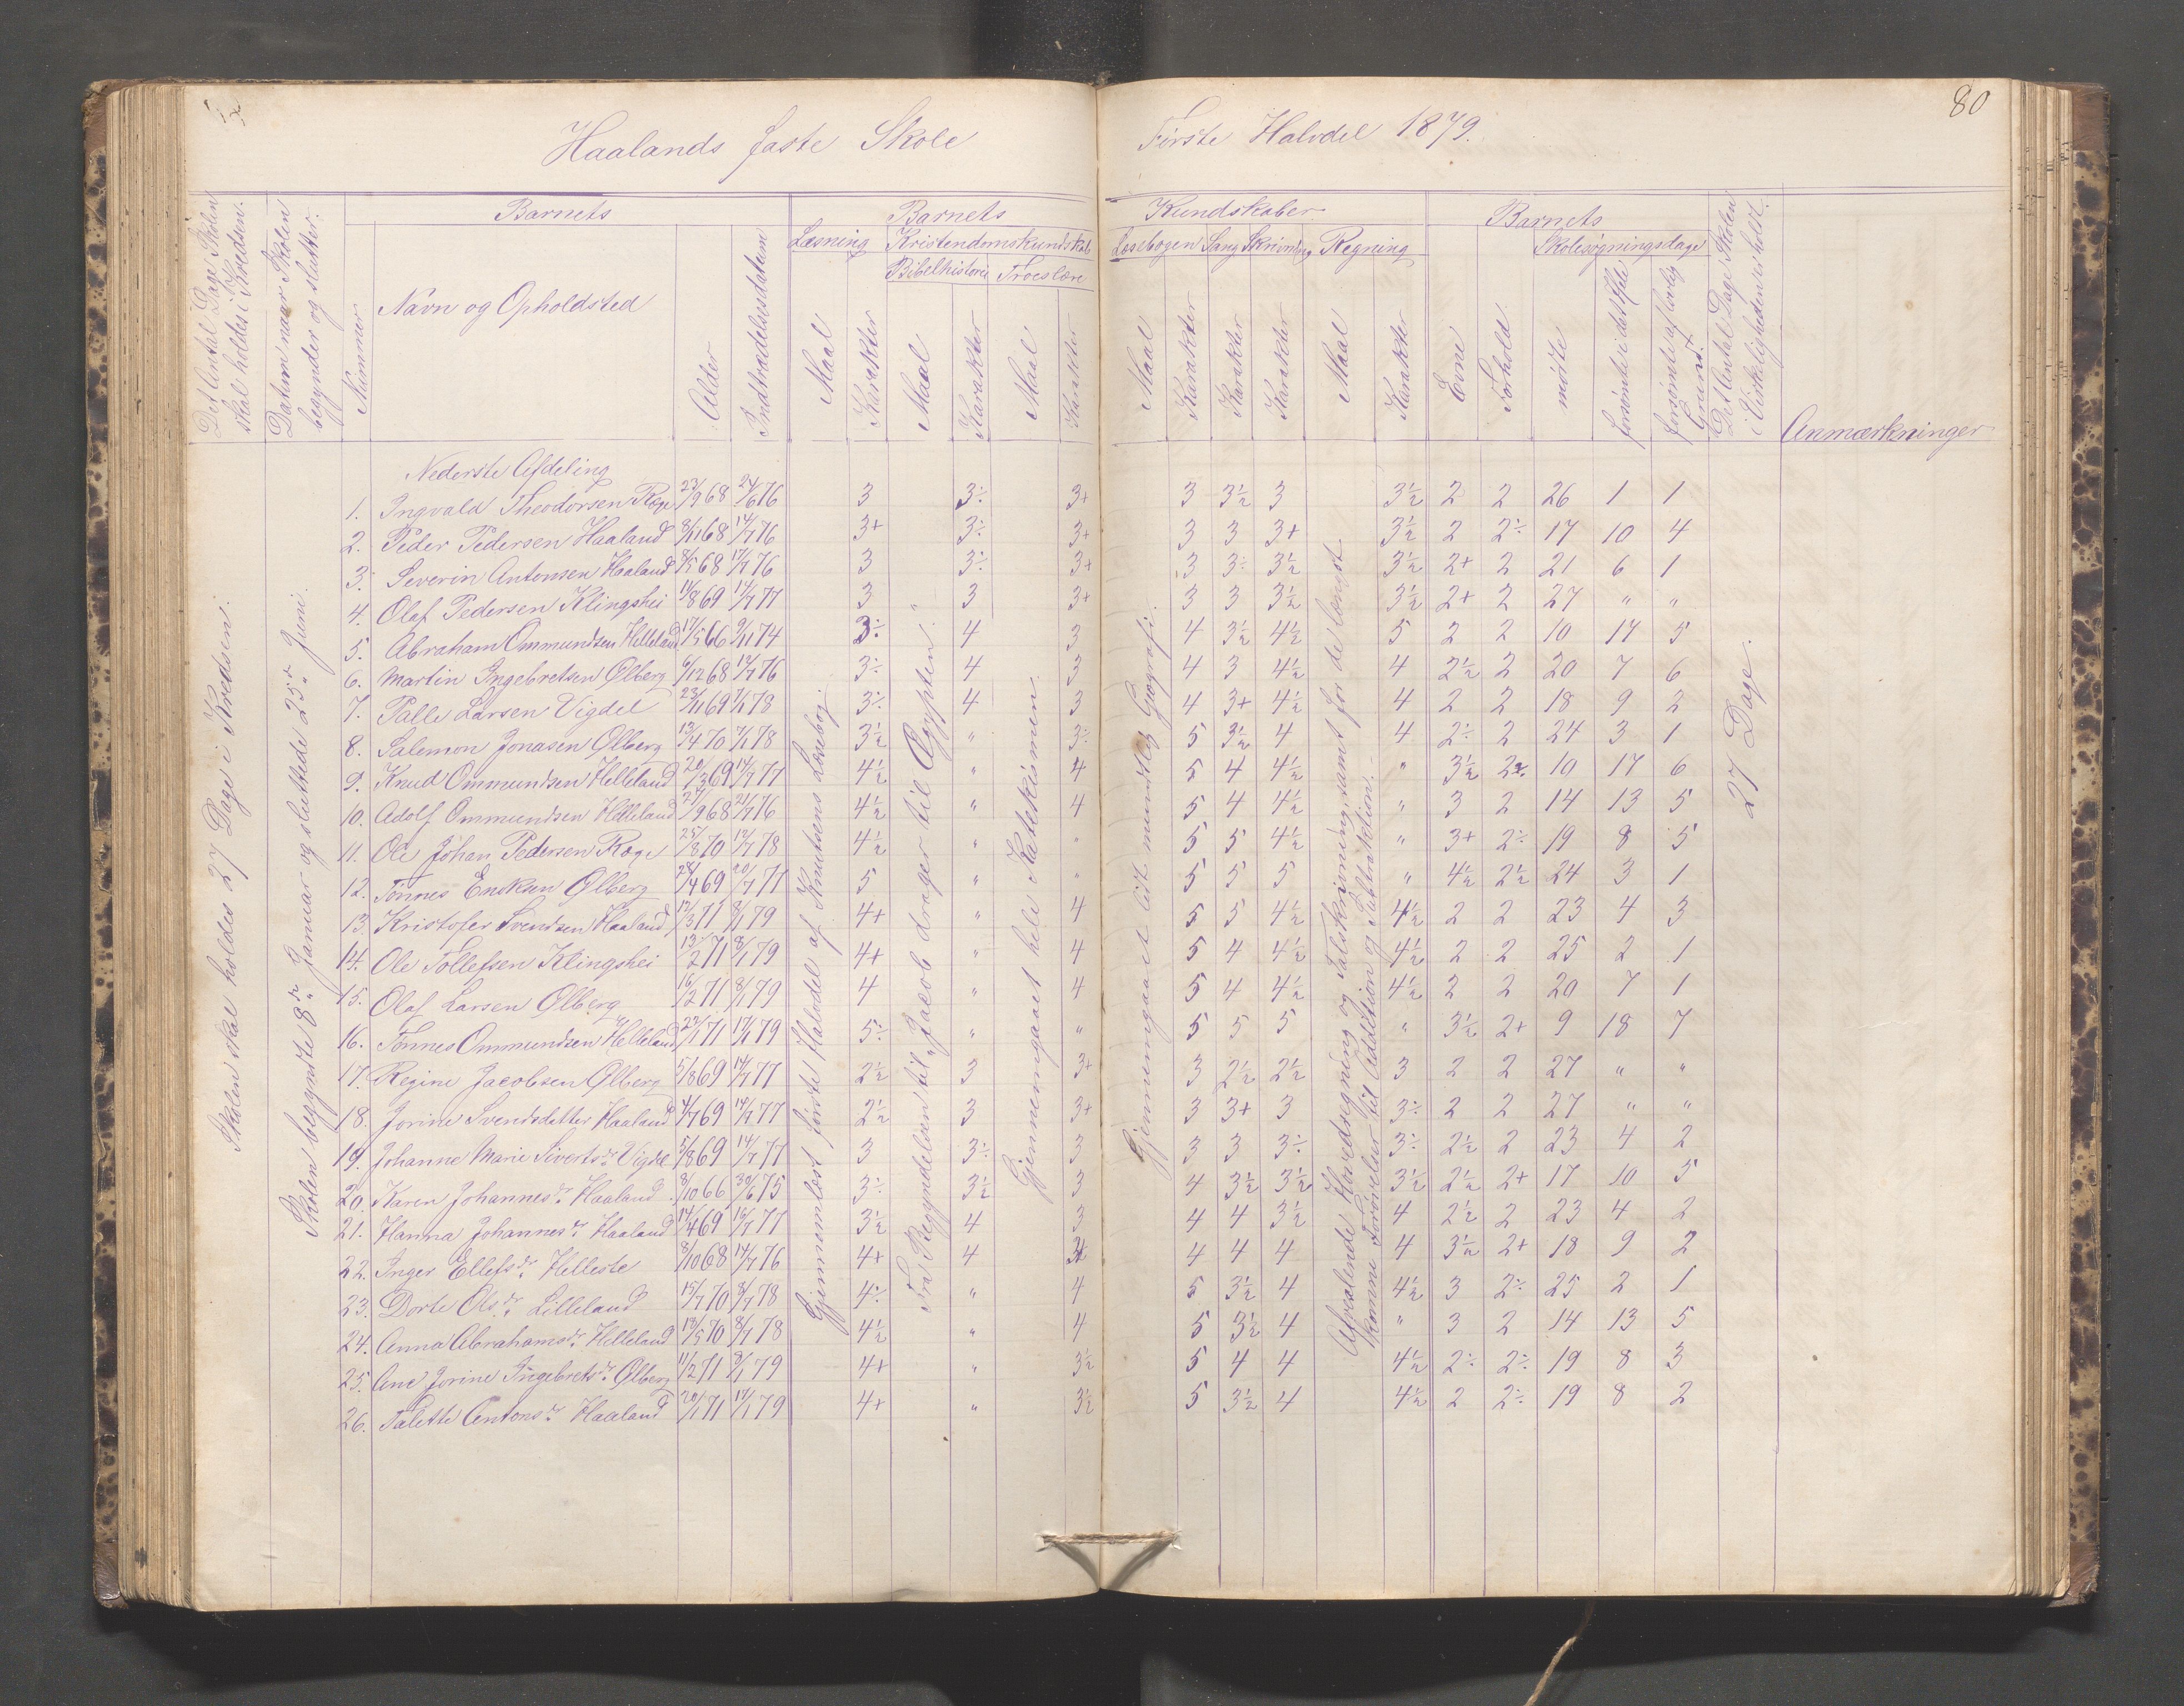 80
Haalands faste Skole
Første Halvdel 1879.
Det Antal Dage Skolen skal holdes i Kredsen.
Datum naar Skolen begynder og slutter.
Barnets
Nummer
Navn og Opholdsted
Alder
Indtrædelsesdatum
Barnets
Kundskaber
Læsning
Kristendomskundskab
Bibelhistorie
Troeslære
Maal
Karakter
Maal
Karakter
Maal
Karakter
Læsebogen
Sang
Skrivning
Regning
Maal
Karakter
Karakter
Karakter
Maal
Karakter
Barnets
Evne
Forhold
Skolesøgningsdage
mødte
forsømte i det Hele
forsømte af lovlig Grund.
Det Antal Dage Skolen i Virkeligheden er holdt.
Anmærkninger
Skolen skal holdes 27 Dage i Kredsen.
Skolen begyndte 8de Januar og sluttede 25de Juni.
Gjennemlæst første Halvdel af Knutsens Læsebog.
Fra Begyndelsen til "Jacob drager til Ægypten".
Gjennemgaaet hele Katekismen.
Gjennemgaaet lidt mundtlig Geografi.
Afvexlende Hovedregning og Talskrivning, samt for de længst komne Forøvelser til Addition og Subtraktion.
27 Dage.
Nederste Afdeling
1. Ingvald Theodorsen Ræge 23/9 68 24/6 76 3 3÷ 3+ 3 3½ 3 3½ 2 2 26 1 1
2. Peder Pedersen Haaland 8/11 68 14/7 76 3+ 3÷ 3+ 3 3 3+ 3½ 2 2÷ 17 10 4
3. Severin Antonsen Haaland 8/5 68 17/7 76 3 3÷ 3+ 3 3÷ 3½ 3½ 2+ 2 21 6 1
4. Olaf Pedersen Klingshei 11/8 69 14/7 77 3 3 3+ 3 3 3½ 3½ 2+ 2 27 " "
5. Abraham Ommundsen Helleland 17/5 66 9/11 74 3÷ 4 3 4 3½ 4½ 5 2 2 10 17 5
6. Martin Ingebretsen Ølberg 6/12 68 14/7 76 3÷ 4 3 4 3 4½ 4 2½ 2 20 7 6
7. Palle Larsen Vigdel 23/11 69 7/1 78 3÷ 4 3 4 3+ 4½ 4 2 2 18 9 2
8. Salemon Jonasen Ølberg 13/4 70 7/1 78 3½ " 3÷ 5 3½ 4 4 2÷ 2 24 3 1
9. Knud Ommundsen Helleland 20/3 69 14/7 77 4½ " 4 5 4 4½ " 3½ 2÷ 10 17 6
10. Adolf Ommundsen Helleland 27/9 68 21/7 76 4½ " 4 5 4 4½ " 3 2 14 13 5
11. Ole Johan Pedersen Ræge 25/8 70 12/7 78 4½ " " 5 5 4½ " 3+ 2÷ 19 8 5
12. Tønnes Eriksen Ølberg 28/4 69 20/7 77 5 " " 5 5 5 " 4½ 2½ 24 3 1
13. Kristofer Svendsen Haaland 12/3 71 8/1 79 4+ " 4 5 5 4½ 4½ 2 2 23 4 3
14. Ole Tollefsen Klingshei 13/2 71 8/1 79 4+ " 4 5 4 4½ 4½ 2 2 25 2 1
15. Olaf Larsen Ølberg 16/2 71 8/1 79 4 " 4 5 4 4½ 4½ 2 2 20 7 1
16. Tønnes Ommundsen Helleland 22/1 71 17/1 79 5÷ " " 5 5 5 " 3½ 2+ 9 18 7
17. Regine Jacobsen Ølberg 5/8 69 14/7 77 2½ 3 3+ 3 2½ 2½ 3 2 2 27 " "
18. Jorine Svendsdatter Haaland 4/7 69 14/7 77 2½ 3 3+ 3 3+ 3 3÷ 2 2 27 " "
19. Johanne Marie Sivertsdr. Vigdel 5/8 69 14/7 77 3 3÷ 3 3 3 3÷ 3÷ 2½ 2 23 4 2
20. Karen Johannesdr. Haaland 8/10 66 30/6 75 3÷ 3½ 3 4 3½ 3½ 3½ 2½ 2+ 17 10 5
21. Hanna Johannesdr. Haaland 14/4 69 16/7 77 3½ 4 3 4 4 3½ 4 2½ 2 23 4 2
22. Inger Ellefsdr. Helleste 8/10 68 14/7 76 4+ 4 4 4 4 4 3½ 2+ 18 9 2
23. Dorte Olsdr. Lilleland 15/7 70 8/7 78 4÷ " 4 5 3½ 4 4½ 3 2÷ 25 2 1
24. Anna Abrahamsdr. Helleland 13/5 70 8/7 78 4½ " 4 5 3½ 4 " 3 2 14 13 5
25. Ane Jorine Ingebretsdr. Ølberg 11/2 71 8/1 79 4+ " 3½ 5 4 4 4½ 2÷ 2÷ 19 8 3
26. Talette Antonsdr. Haaland 20/1 71 17/1 79 4+ " 3½ 5 3½ 4 4½ 2 2÷ 19 8 2